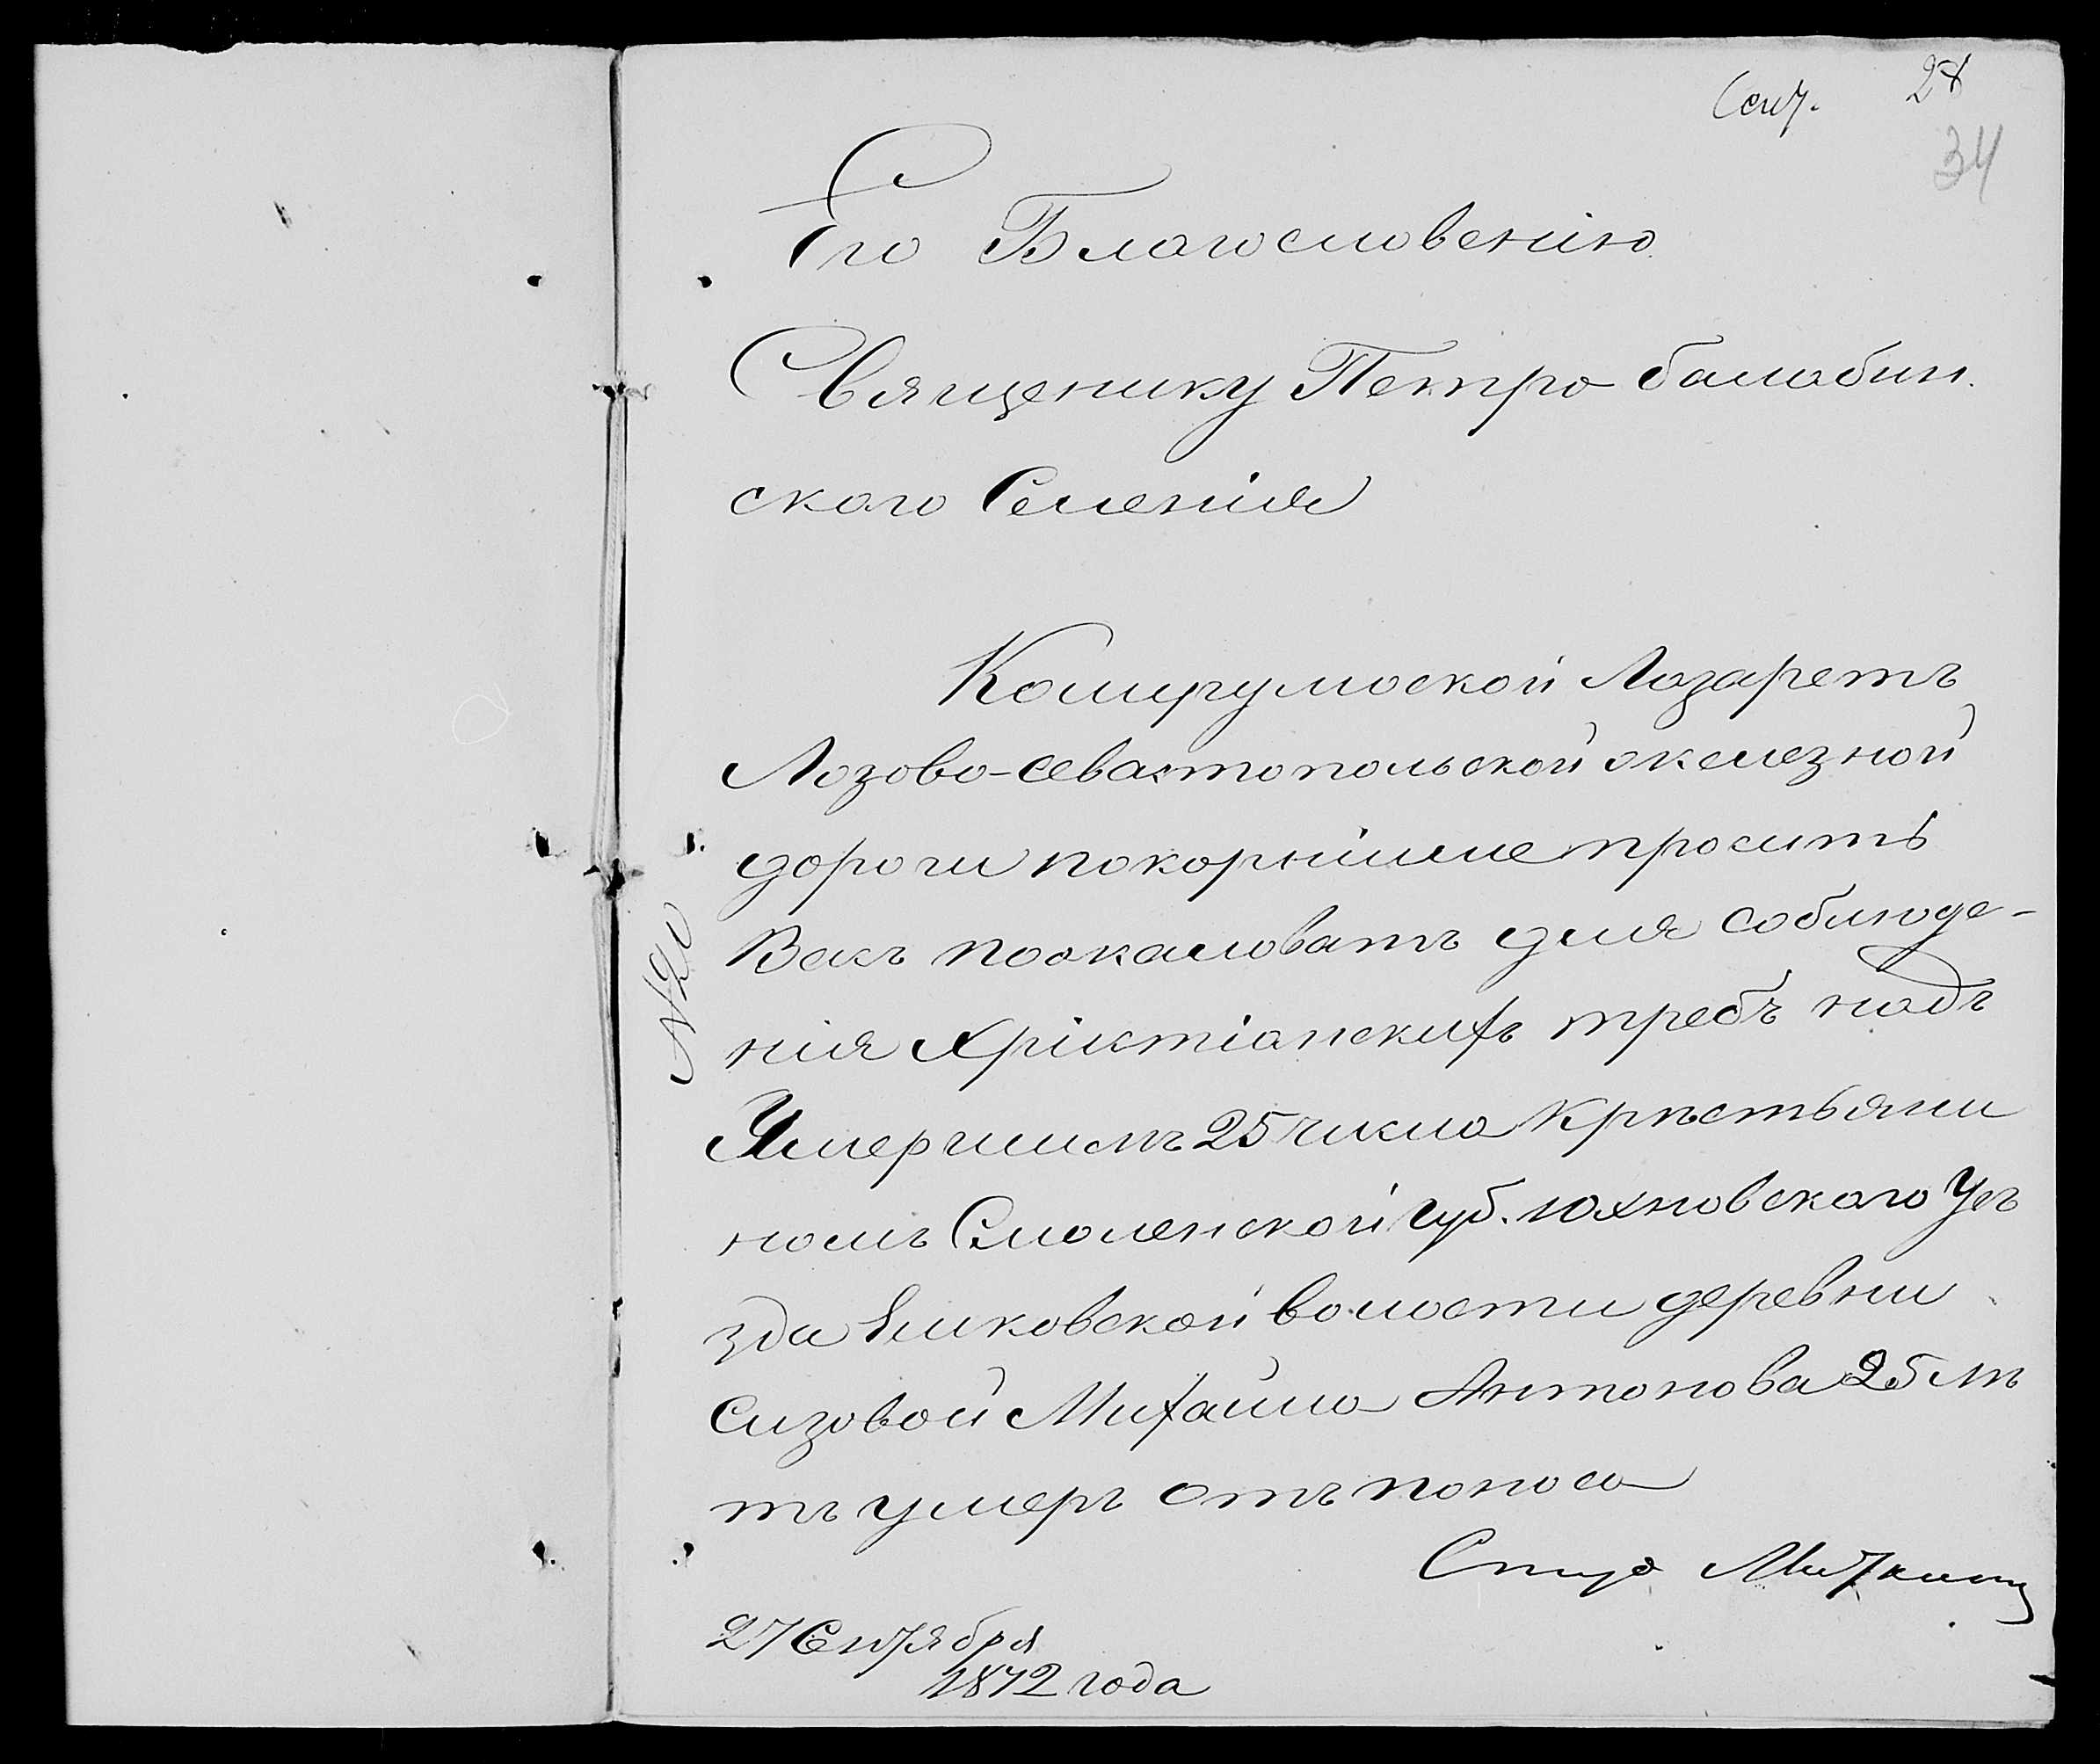 Сент. 27
34
Его Благословенію
Священику Петро балабин.
ского Селенія
Лазаретъ
Лозово-севастопольской железной
дороги покорнійше проситъ
Васъ пожаловатъ для соблюде-
нія Хрістіанскихъ требъ надъ
№ 20
Умершимъ 25 числа Крѣстьяни
номъ Смоленской губ. Юхновского Уѣ
зда волости деревни
Сизовой Михаила Антонова 25 лѣ
тъ умеръ отъ поноса
27 Сентября
1872 года